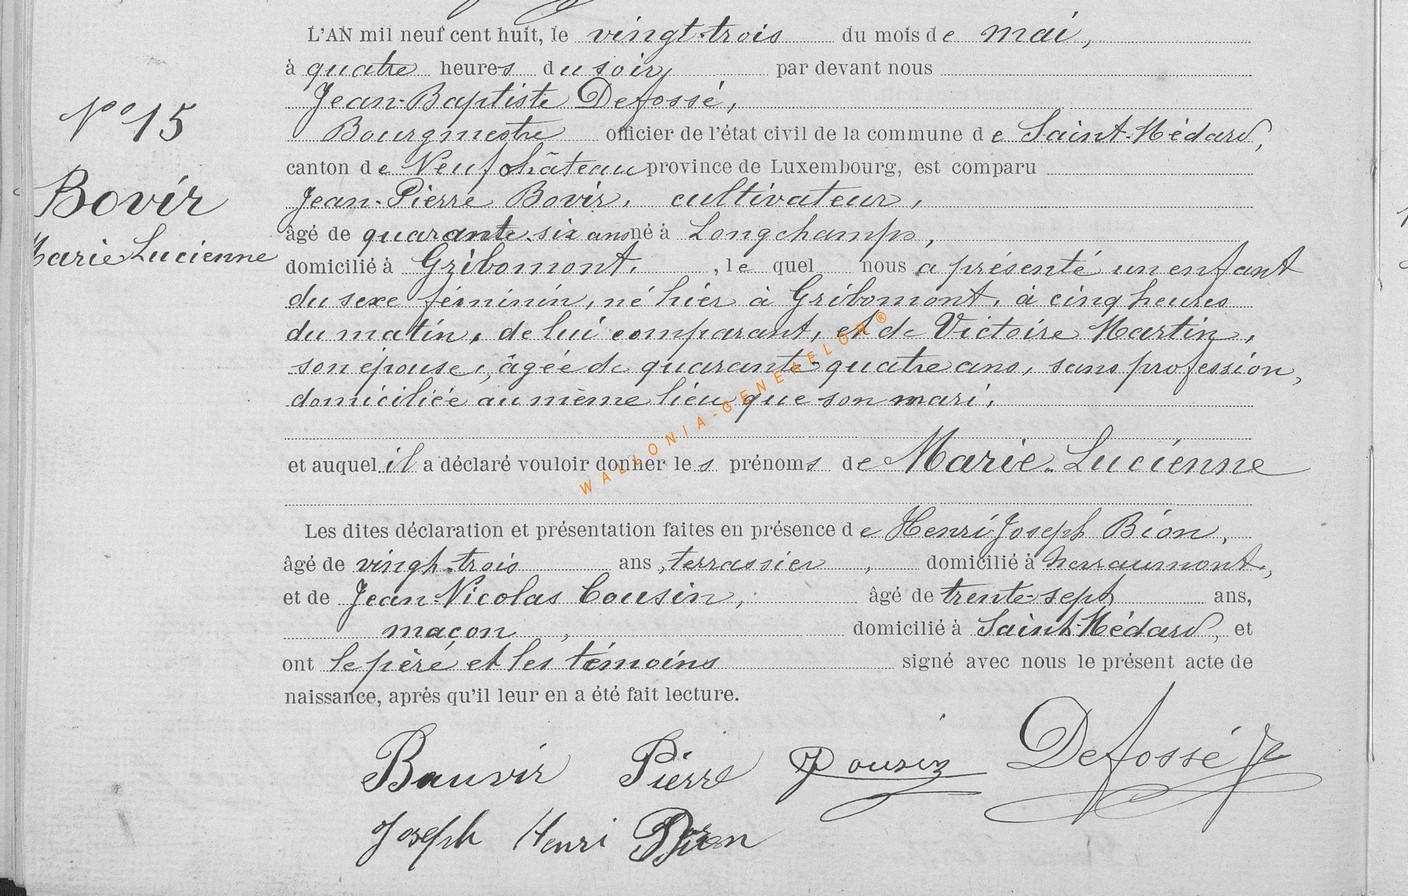 N° 15
Bovir
Marie Lucienne
L'AN mil neuf cent huit, le vingt-trois du mois de mai,
à quatre heures du soir, par devant nous
Jean-Baptiste Defossé,
Bourgmestre officier de l'état civil de la commune de Saint-Médard,
canton de Neufchâteau province de Luxembourg, est comparu
Jean-Pierre Bovir, cultivateur,
âgé de quarante-six ans né à Longchamps,
domicilié à Gribomont, , le quel nous a présenté un enfant
du sexe féminin, né hier à Gribomont, à cinq heures
du matin, de lui comparant, et de Victoire Martin,
son épouse, âgée de quarante-quatre ans, sans profession,
domiciliée au même lieu que son mari.
et auquel il a déclaré vouloir donner les prénoms de Marie-Lucienne
Les dites déclaration et présentation faites en présence de Henri Joseph Bion,
âgé de vingt-trois ans, terrassier, domicilié à
et de Jean-Nicolas Cousin, âgé de trente-sept ans,
maçon, domicilié à Saint-Médard, et
ont le père et les témoins signé avec nous le présent acte de
naissance, après qu'il leur en a été fait lecture.
Bauvir Pierre Defossé
Joseph Henri
WALLONIA-GENEFELOR®